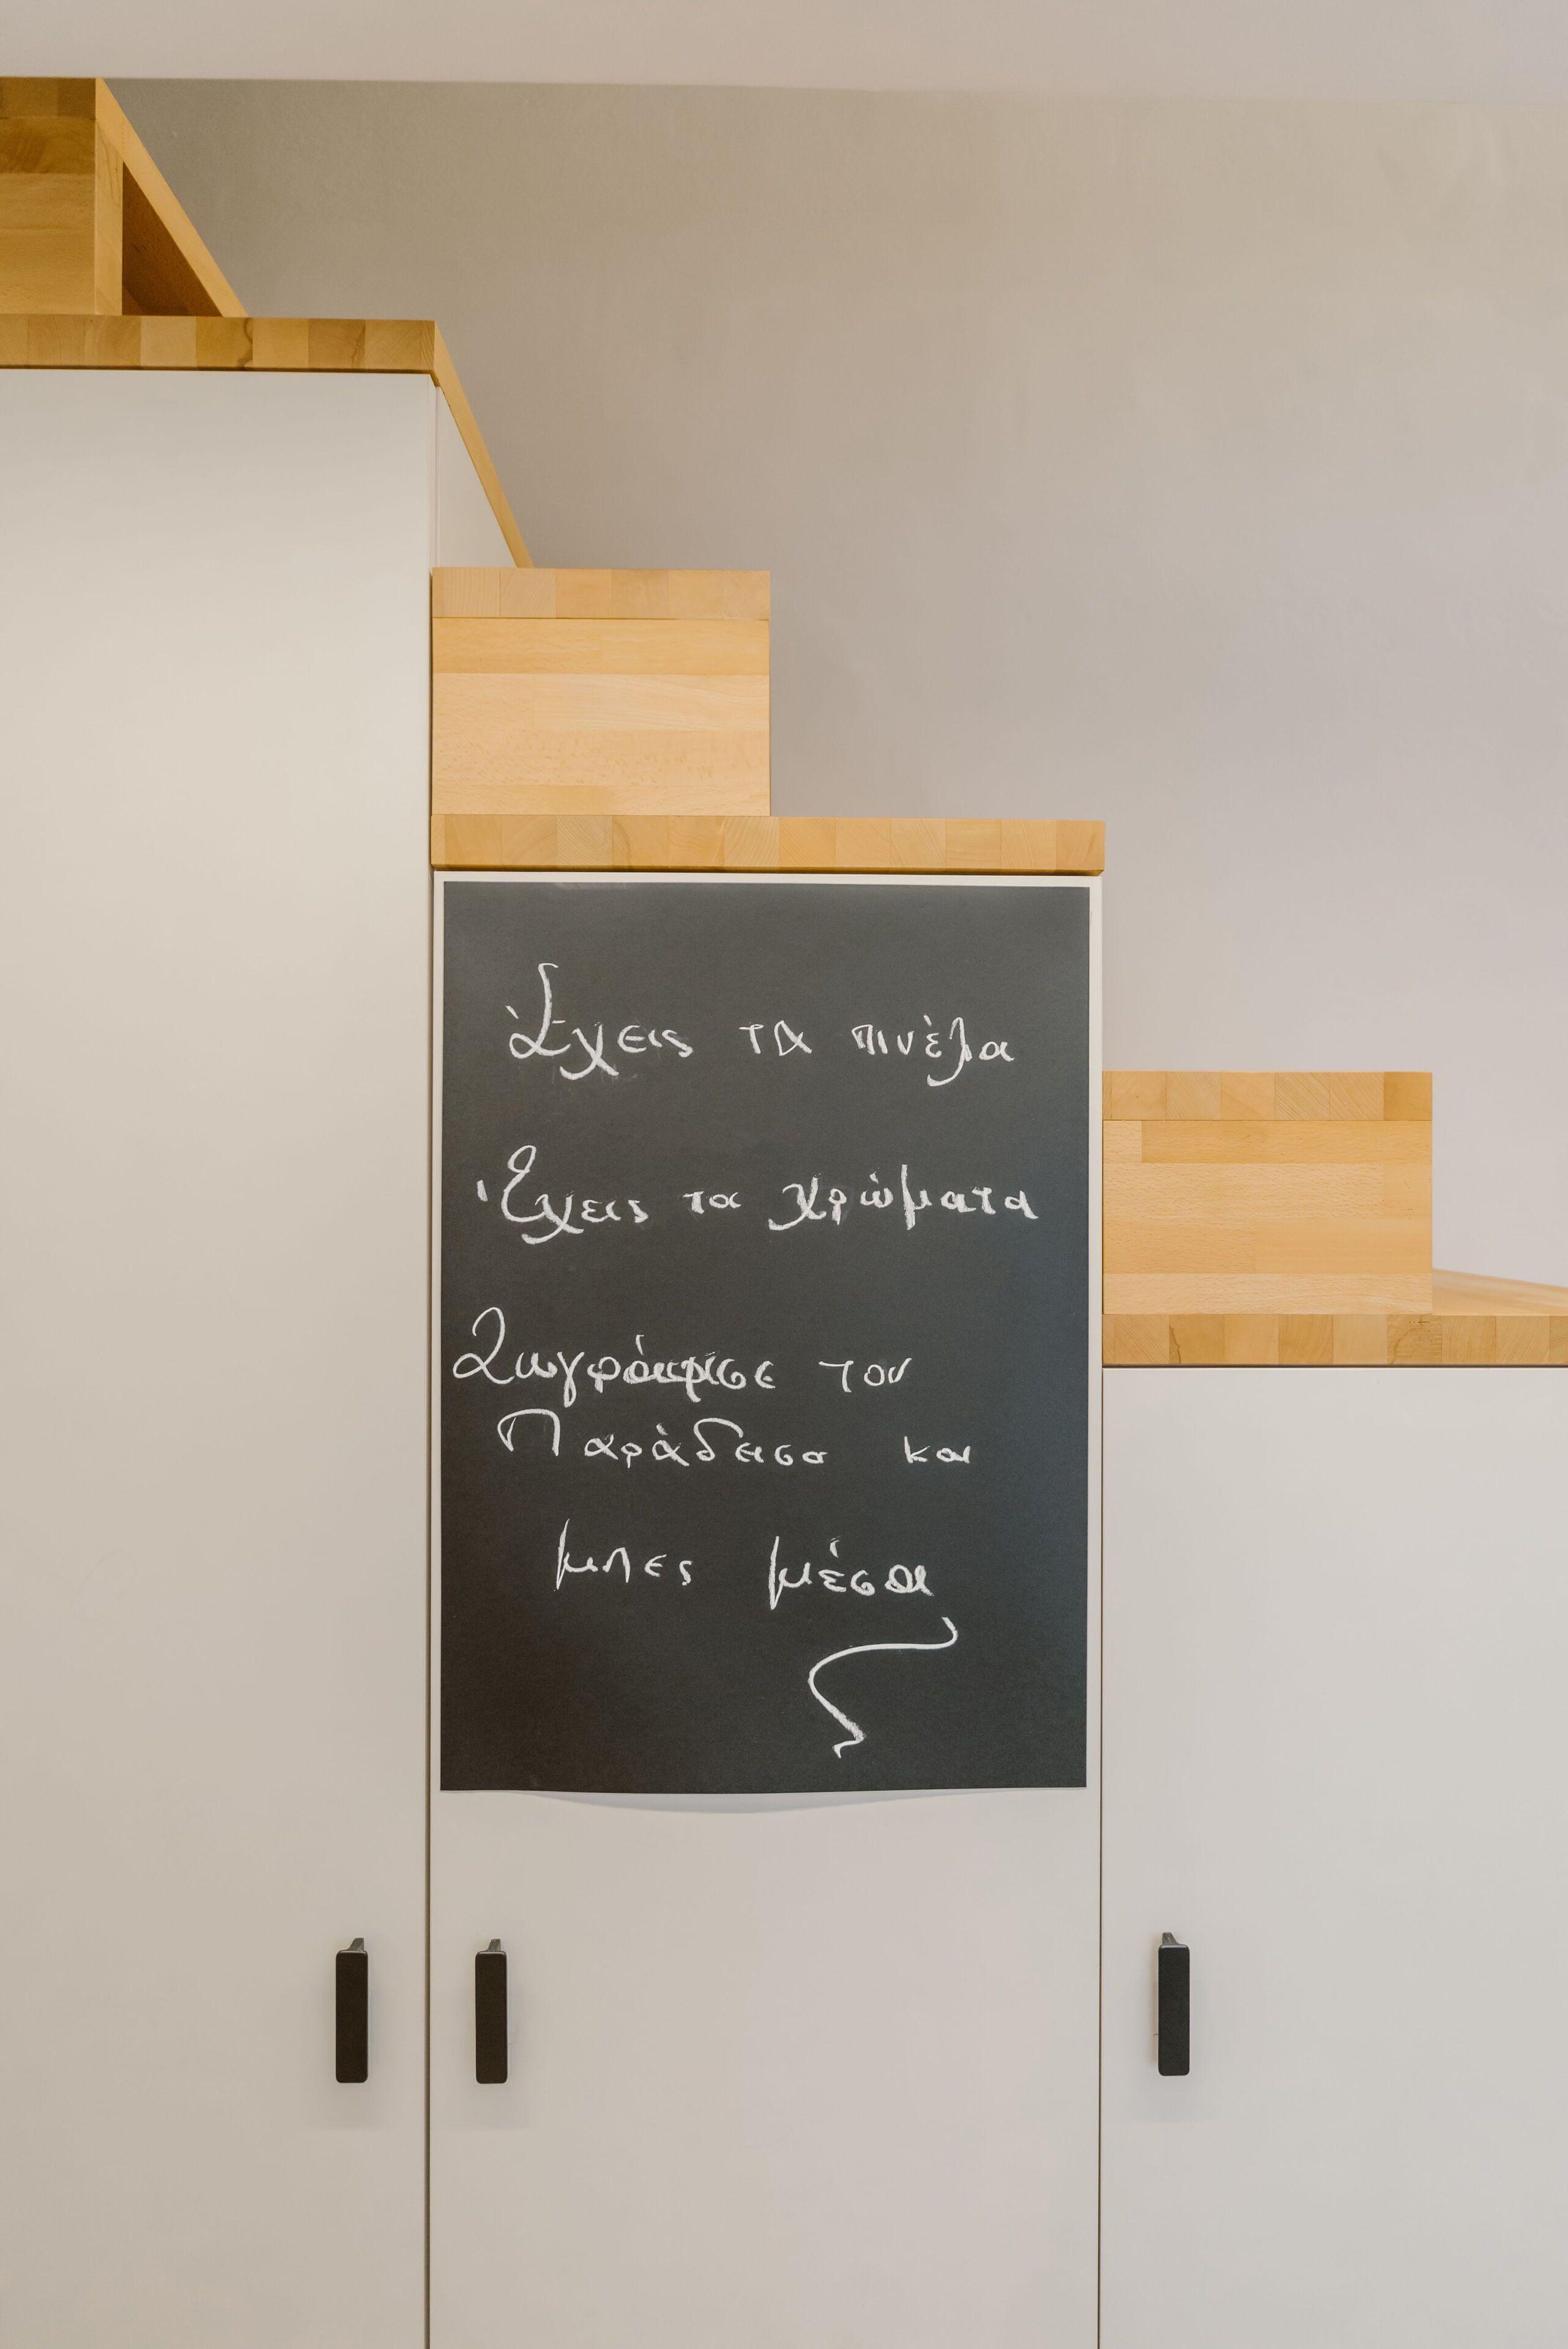 Έχεις τα πινέλα
Έχεις τα χρώματα
Ζωγράφισε τον
Παράδεισο και
μπες μέσα